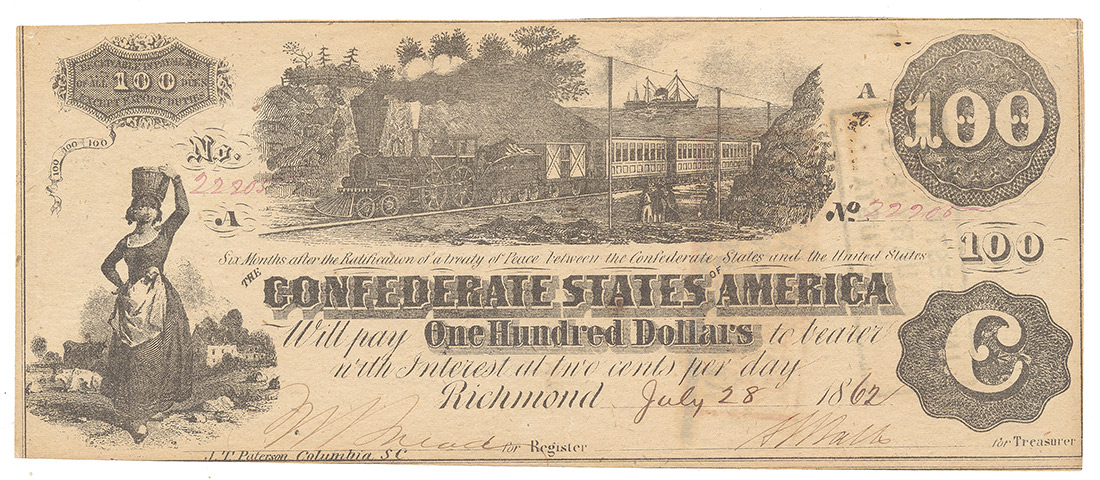 RECEIVABLE IN PAYMENT
OF ALL 100 DUES
EXCEPT EXPORT DUTIES
100 100 100
No.
22205
A
A
100
No 22205
100
Six Months after the Ratification of a treaty of Peace between the Confederate States and the United States
THE CONFEDERATE STATES OF AMERICA
Will pay One Hundred Dollars to bearer
with Interest at two cents per day
Richmond July 28 1862
C
for Register
for Treasurer
J. T. Paterson Columbia, S.C